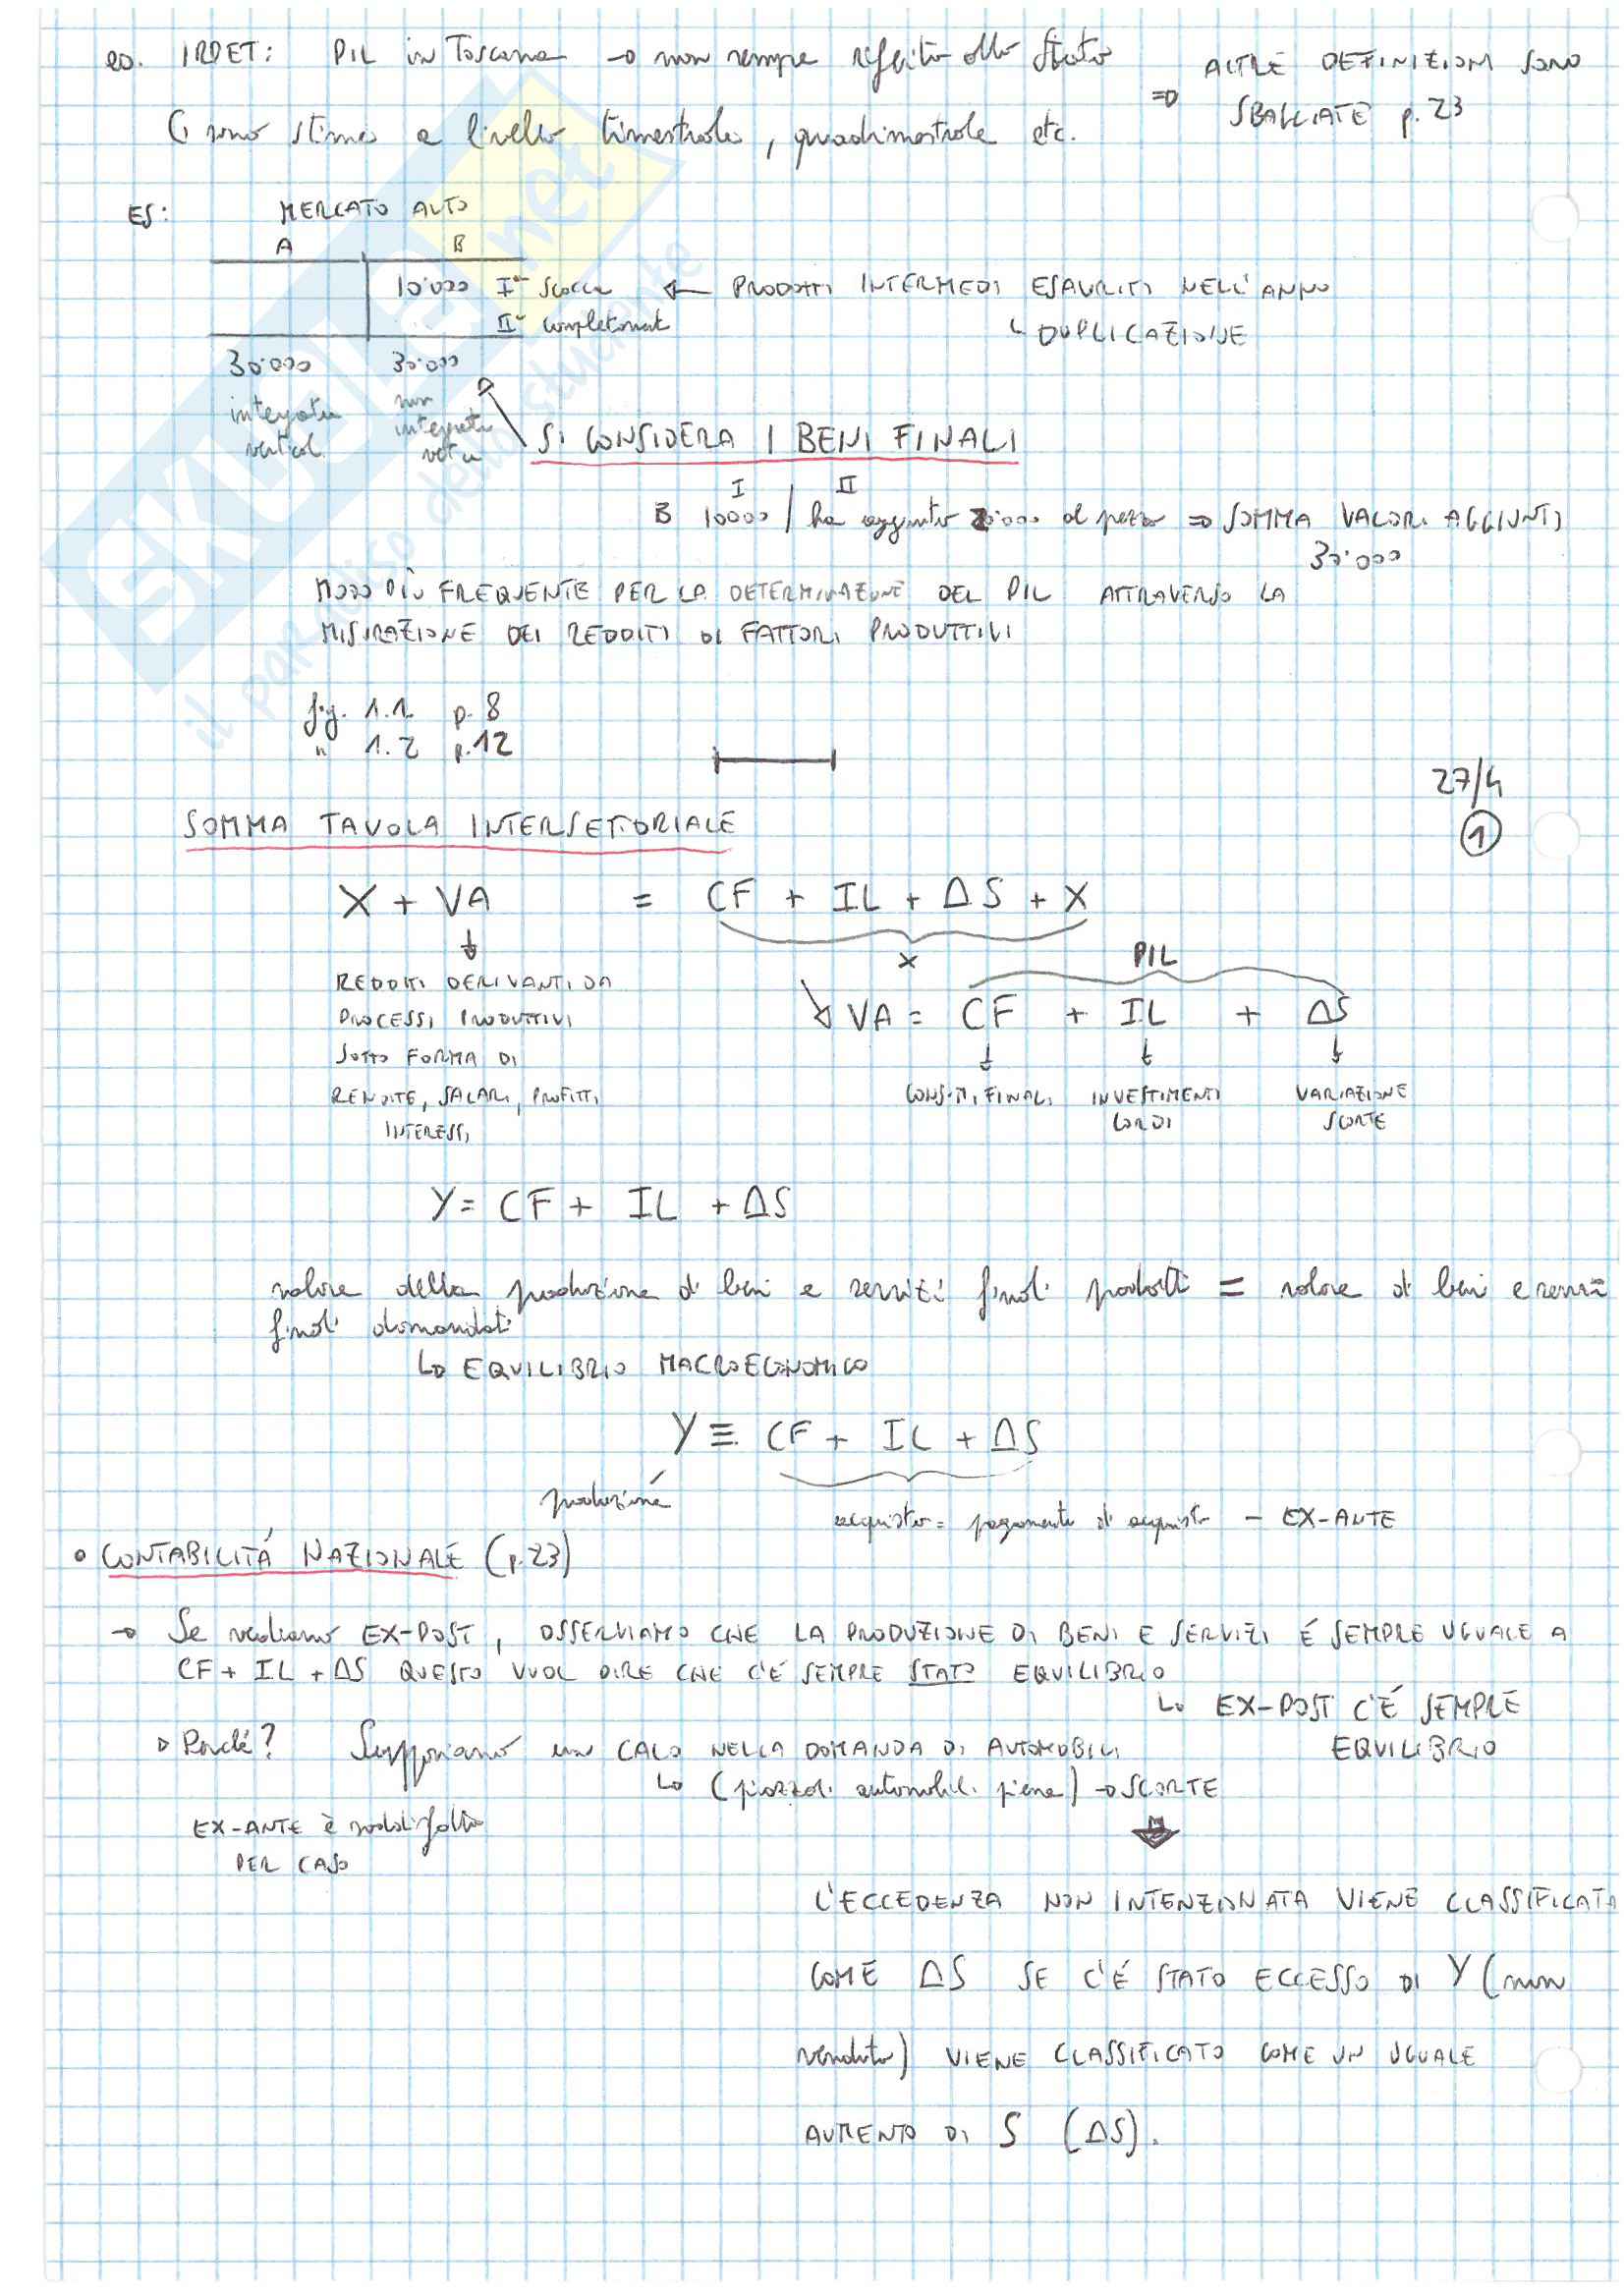 es. IRPET: PIL in Toscana → non sempre riferito allo Stato ⇒ ALTRE DEFINIZIONI SONO SBAGLIATE p. 23
Ci sono stime a livello trimestrale, quadrimestrale etc.
ES: MERCATO AUTO
A B
10'000 Iª Scocca ← PRODOTTI INTERMEDI ESAURITI NELL'ANNO
IIª completament
↳ DUPLICAZIONE
30'000 30'000
integrata vertical. non integrata
SI CONSIDERA I BENI FINALI
I II
B 10000 / ha aggiunto 20'000 al pezzo ⇒ SOMMA VALORI AGGIUNTI
30'000
MODO PIÙ FREQUENTE PER LA DETERMINAZIONE DEL PIL ATTRAVERSO LA
MISURAZIONE DEI REDDITI DI FATTORI PRODUTTIVI
fig. 1.1. p. 8
" 1.2 p.12
27/4
1
SOMMA TAVOLA INTERSETTORIALE
X + VA = CF + IL + ΔS + X
X
PIL
VA = CF + IL + ΔS
REDDITI DERIVANTI DA
PROCESSI PRODUTTIVI
SOTTO FORMA DI
RENDITE, SALARI, PROFITTI,
INTERESSI
CONSUMI FINALI INVESTIMENTI LORDI VARIAZIONE SCORTE
Y = CF + IL + ΔS
valore della produzione di beni e servizi finali prodotti = valore di beni e servizi
finali domandati
↳ EQUILIBRIO MACROECONOMICO
Y ≡ CF + IL + ΔS
produzione
acquisto = pagamento di acquisto - EX-ANTE
• CONTABILITÁ NAZIONALE (p.23)
→ Se vediamo EX-POST, OSSERVIAMO CHE LA PRODUZIONE DI BENI E SERVIZI É SEMPRE UGUALE A
CF + IL + ΔS QUESTO VUOL DIRE CHE C'É SEMPRE STATO EQUILIBRIO
↳ EX-POST C'É SEMPRE
EQUILIBRIO
▹ Perché? Supponiamo un CALO NELLA DOMANDA DI AUTOMOBILI
↳ (piazzali automobili piene) → SCORTE
EX-ANTE è soddisfatto
PER CASO
L'ECCEDENZA NON INTENZIONATA VIENE CLASSIFICATA
COME ΔS SE C'É STATO ECCESSO DI Y (non
venduto) VIENE CLASSIFICATO COME UN UGUALE
AUMENTO DI S (ΔS).
SKUOLA.net
il paradiso dello studente